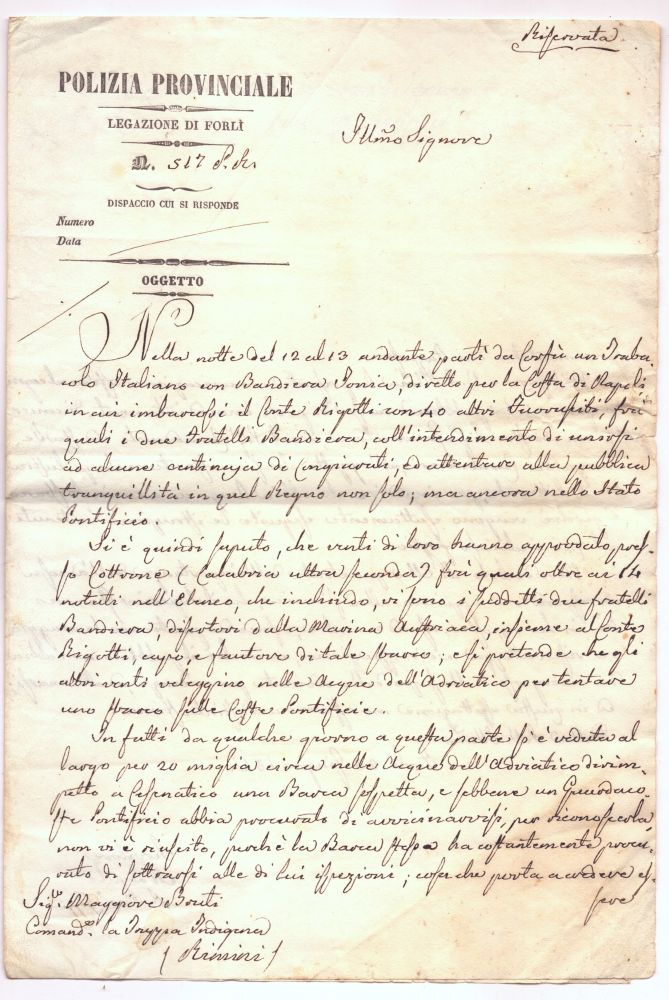 Riservata
POLIZIA PROVINCIALE
LEGAZIONE DI FORLÌ
N. 517 P. R.
Illmo Signore
DISPACCIO CUI SI RISPONDE
Numero
Data
OGGETTO
Nella notte del 12 al 13 andante, partì da Corfù un Traba-
colo Italiano con Bandiera Ionia, diretto per la Costa di Napoli
in cui imbarcossi il Conte Rigotti con 40 altri Fuorusciti, fra
quali i due Fratelli Bandiera, coll'intendimento di unirsi
ad alcune centinaja di Congiurati, ed attentare alla pubblica
tranquillità in quel Regno non solo; ma ancora nello Stato
Pontificio.
Si è quindi saputo, che venti di loro hanno approdato pres-
so Cottrone (Calabria ultra seconda) fra quali oltre ai 14
notati nell'Elenco, che inchiudo, vi sono i suddetti due fratelli
Bandiera, disertori dalla Marina Austriaca, insieme al Conte
Rigotti, capo, e fautore di tale sbarco; e si pretende che gli
altri venti veleggino nelle Acque dell'Adriatico per tentare
uno sbarco sulle Coste Pontificie.
In fatti da qualche giorno a questa parte si è veduta al
largo per 20 miglia circa nelle Acque dell'Adriatico dirim-
petto a Cesenatico una Barca sospetta, e sebbene un Guardaco-
ste Pontificio abbia procurato di avvicinarvisi, per riconoscerla
non vi è riuscito, perchè la Barca stessa ha costantemente procu-
rato di sottrarsi alle di lui ispezioni; cosa che porta a credere es-
sere
Sigr. Maggiore Bonti
Comandte la Truppa Indigena
(Rimini)